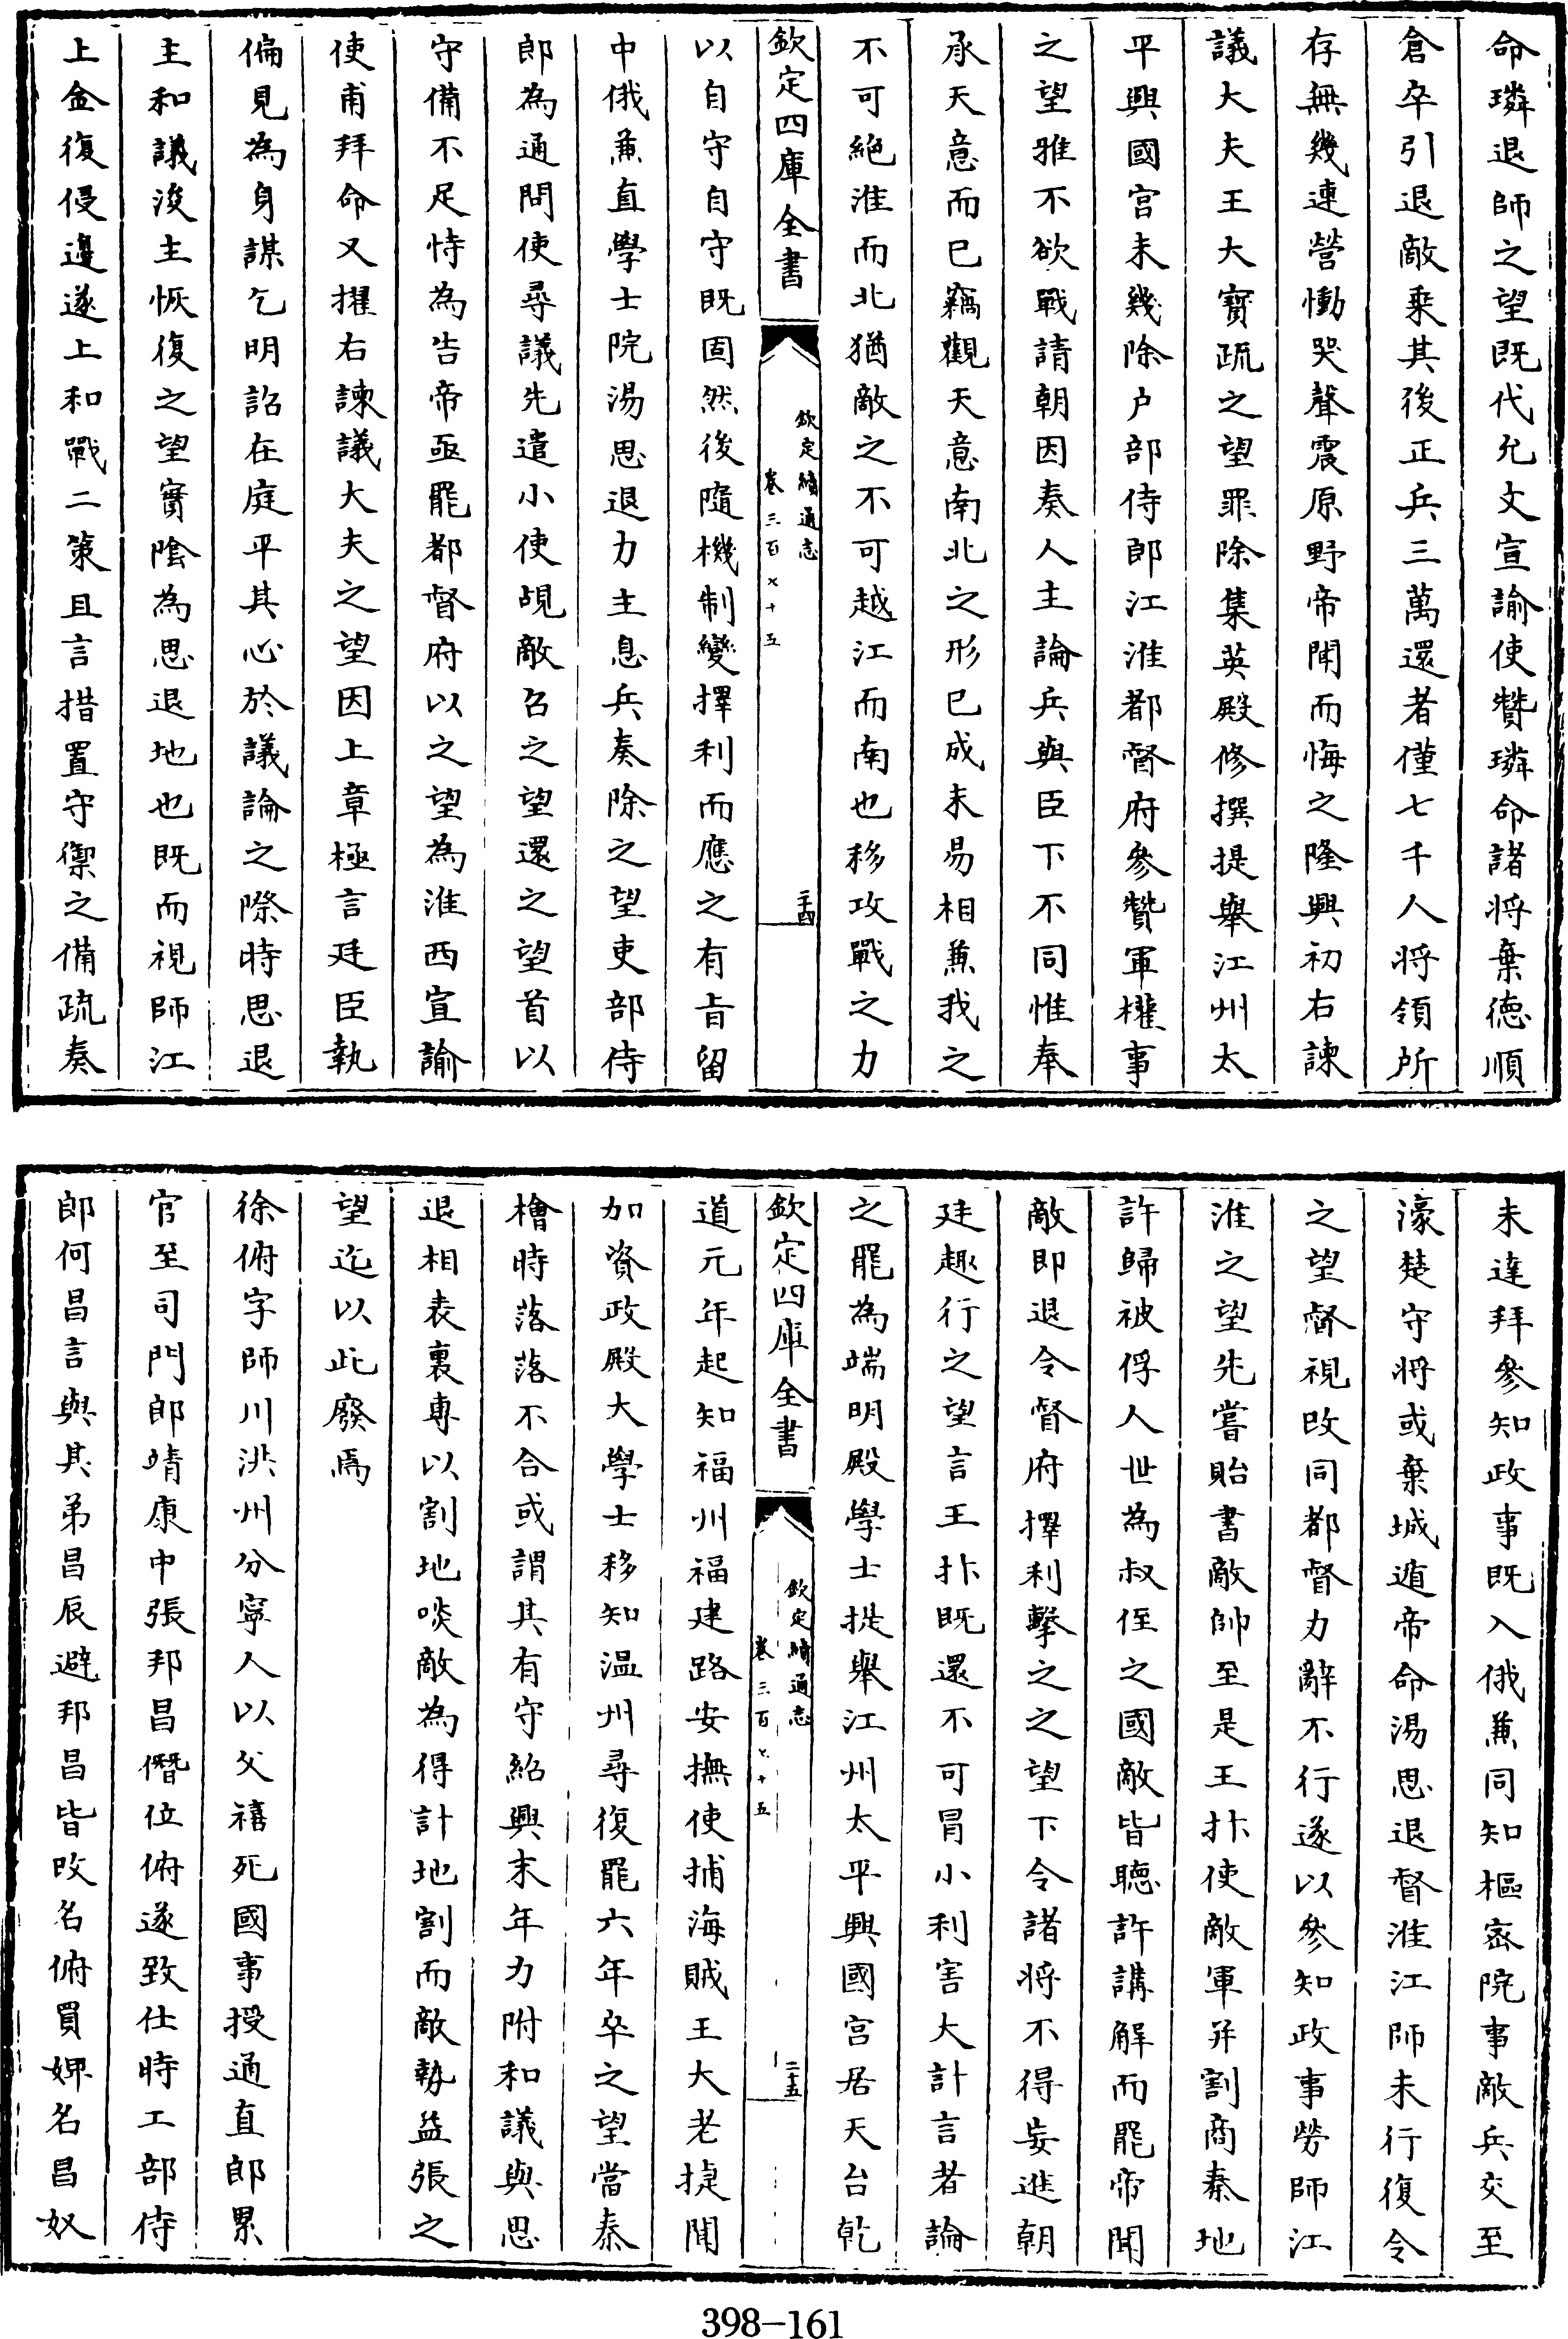 命璘退師之望既代允文宣諭使贊璘命諸將棄德順
倉卒引退敵乘其後正兵三萬還者僅七千人將領所
存無幾連營慟哭聲震原野帝聞而悔之隆興初右諫
議大夫王大寶疏之望罪除集英殿修撰提舉江州太
平興國宮未幾除户部侍郎江淮都督府參贊軍權事
之望雅不欲戰請朝因奏人主論兵與臣下不同惟奉
承天意而已竊觀天意南北之形已成未易相兼我之
不可絕淮而北猶敵之不可越江而南也移攻戰之力
欽定四庫全書
欽定續通志
卷三百七十五
二十四
以自守自守既固然後隨機制變擇利而應之有旨留
中俄兼直學士院湯思退力主息兵奏除之望吏部侍
郎為通問使尋議先遣小使覘敵召之望還之望首以
守備不足恃為告帝亟罷都督府以之望為淮西宣諭
使甫拜命又擢右諫議大夫之望因上章極言廷臣執
偏見為身謀乞明詔在庭平其心於議論之際時思退
主和議浚主恢復之望實陰為思退地也既而視師江
上金復侵邊遂上和戰二策且言措置守禦之備疏奏
未達拜參知政事既入俄兼同知樞密院事敵兵交至
濠楚守將或棄城遁帝命湯思退督淮江師未行復令
之望督視改同都督力辭不行遂以參知政事勞師江
淮之望先嘗貽書敵帥至是王抃使敵軍并割商秦地
許歸被俘人世為叔侄之國敵皆聽許講解而罷帝聞
敵即退令督府擇利擊之之望下令諸將不得妄進朝
廷趣行之望言王抃既還不可冒小利害大計言者論
之罷為端明殿學士提舉江州太平興國宮居天台乾
欽定四庫全書
欽定續通志
卷三百七十五
二十五
道元年起知福州福建路安撫使捕海賊王大老捷聞
加資政殿大學士移知温州尋復罷六年卒之望當秦
檜時落落不合或謂其有守紹興末年力附和議與思
退相表裏專以割地啖敵為得計地割而敵勢益張之
望迄以此廢焉
徐俯字師川洪州分寧人以父禧死國事授通直郎累
官至司門郎靖康中張邦昌僭位俯遂致仕時工部侍
郎何昌言與其弟昌辰避邦昌皆改名俯買婢名昌奴
398-161